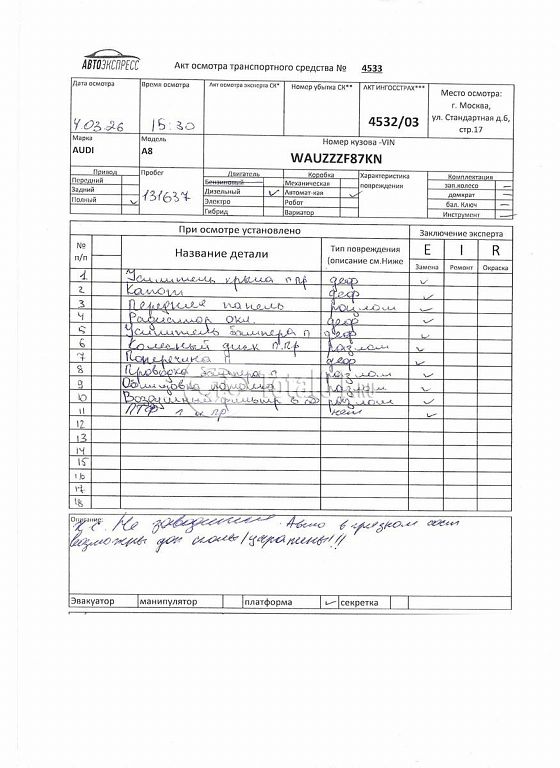 АВТОЭКСПРЕСС
Акт осмотра транспортного средства № 4533
Дата осмотра
Время осмотра
Акт осмотра эксперта СК*
Номер убытка СК**
АКТ ИНГОССТРАХ***
Место осмотра:
г. Москва,
ул. Стандартная д.6,
стр.17
4.03.26
15:30
4532/03
Марка
Модель
Номер кузова -VIN
AUDI
A8
WAUZZZF87KN
Привод
Пробег
Двигатель
Коробка
Характеристика
повреждения
Комплектация
Передний
Бензиновый
Механическая
зап.колесо –
Задний
131637
Дизельный ✓
Автомат-кая ✓
домкрат –
Полный ✓
Электро
Робот
бал. Ключ –
Гибрид
Вариатор
Инструмент –
При осмотре установлено
Заключение эксперта
№
п/п
Название детали
Тип повреждения
(описание см.Ниже
E I R
Замена Ремонт Окраска
1 Усилитель крыла п пр деф ✓
2 Капот деф ✓
3 Передняя панель разлом ✓
4 Радиатор охл. деф ✓
5 Усилитель бампера п деф ✓
6 Колесный диск п.пр разлом ✓
7 Поперечина п деф ✓
8 Проводка бампера п разлом ✓
9 Облицовка разлом ✓
10 Воздушный фильтр в сб разлом ✓
11 ПТФ л и пр нет ✓
12
13
14
15
16
17
18
Описание:
Не заводится. Авто в грязном сост
возможны доп сколы/царапины!!!
Эвакуатор
манипулятор
платформа ✓
секретка